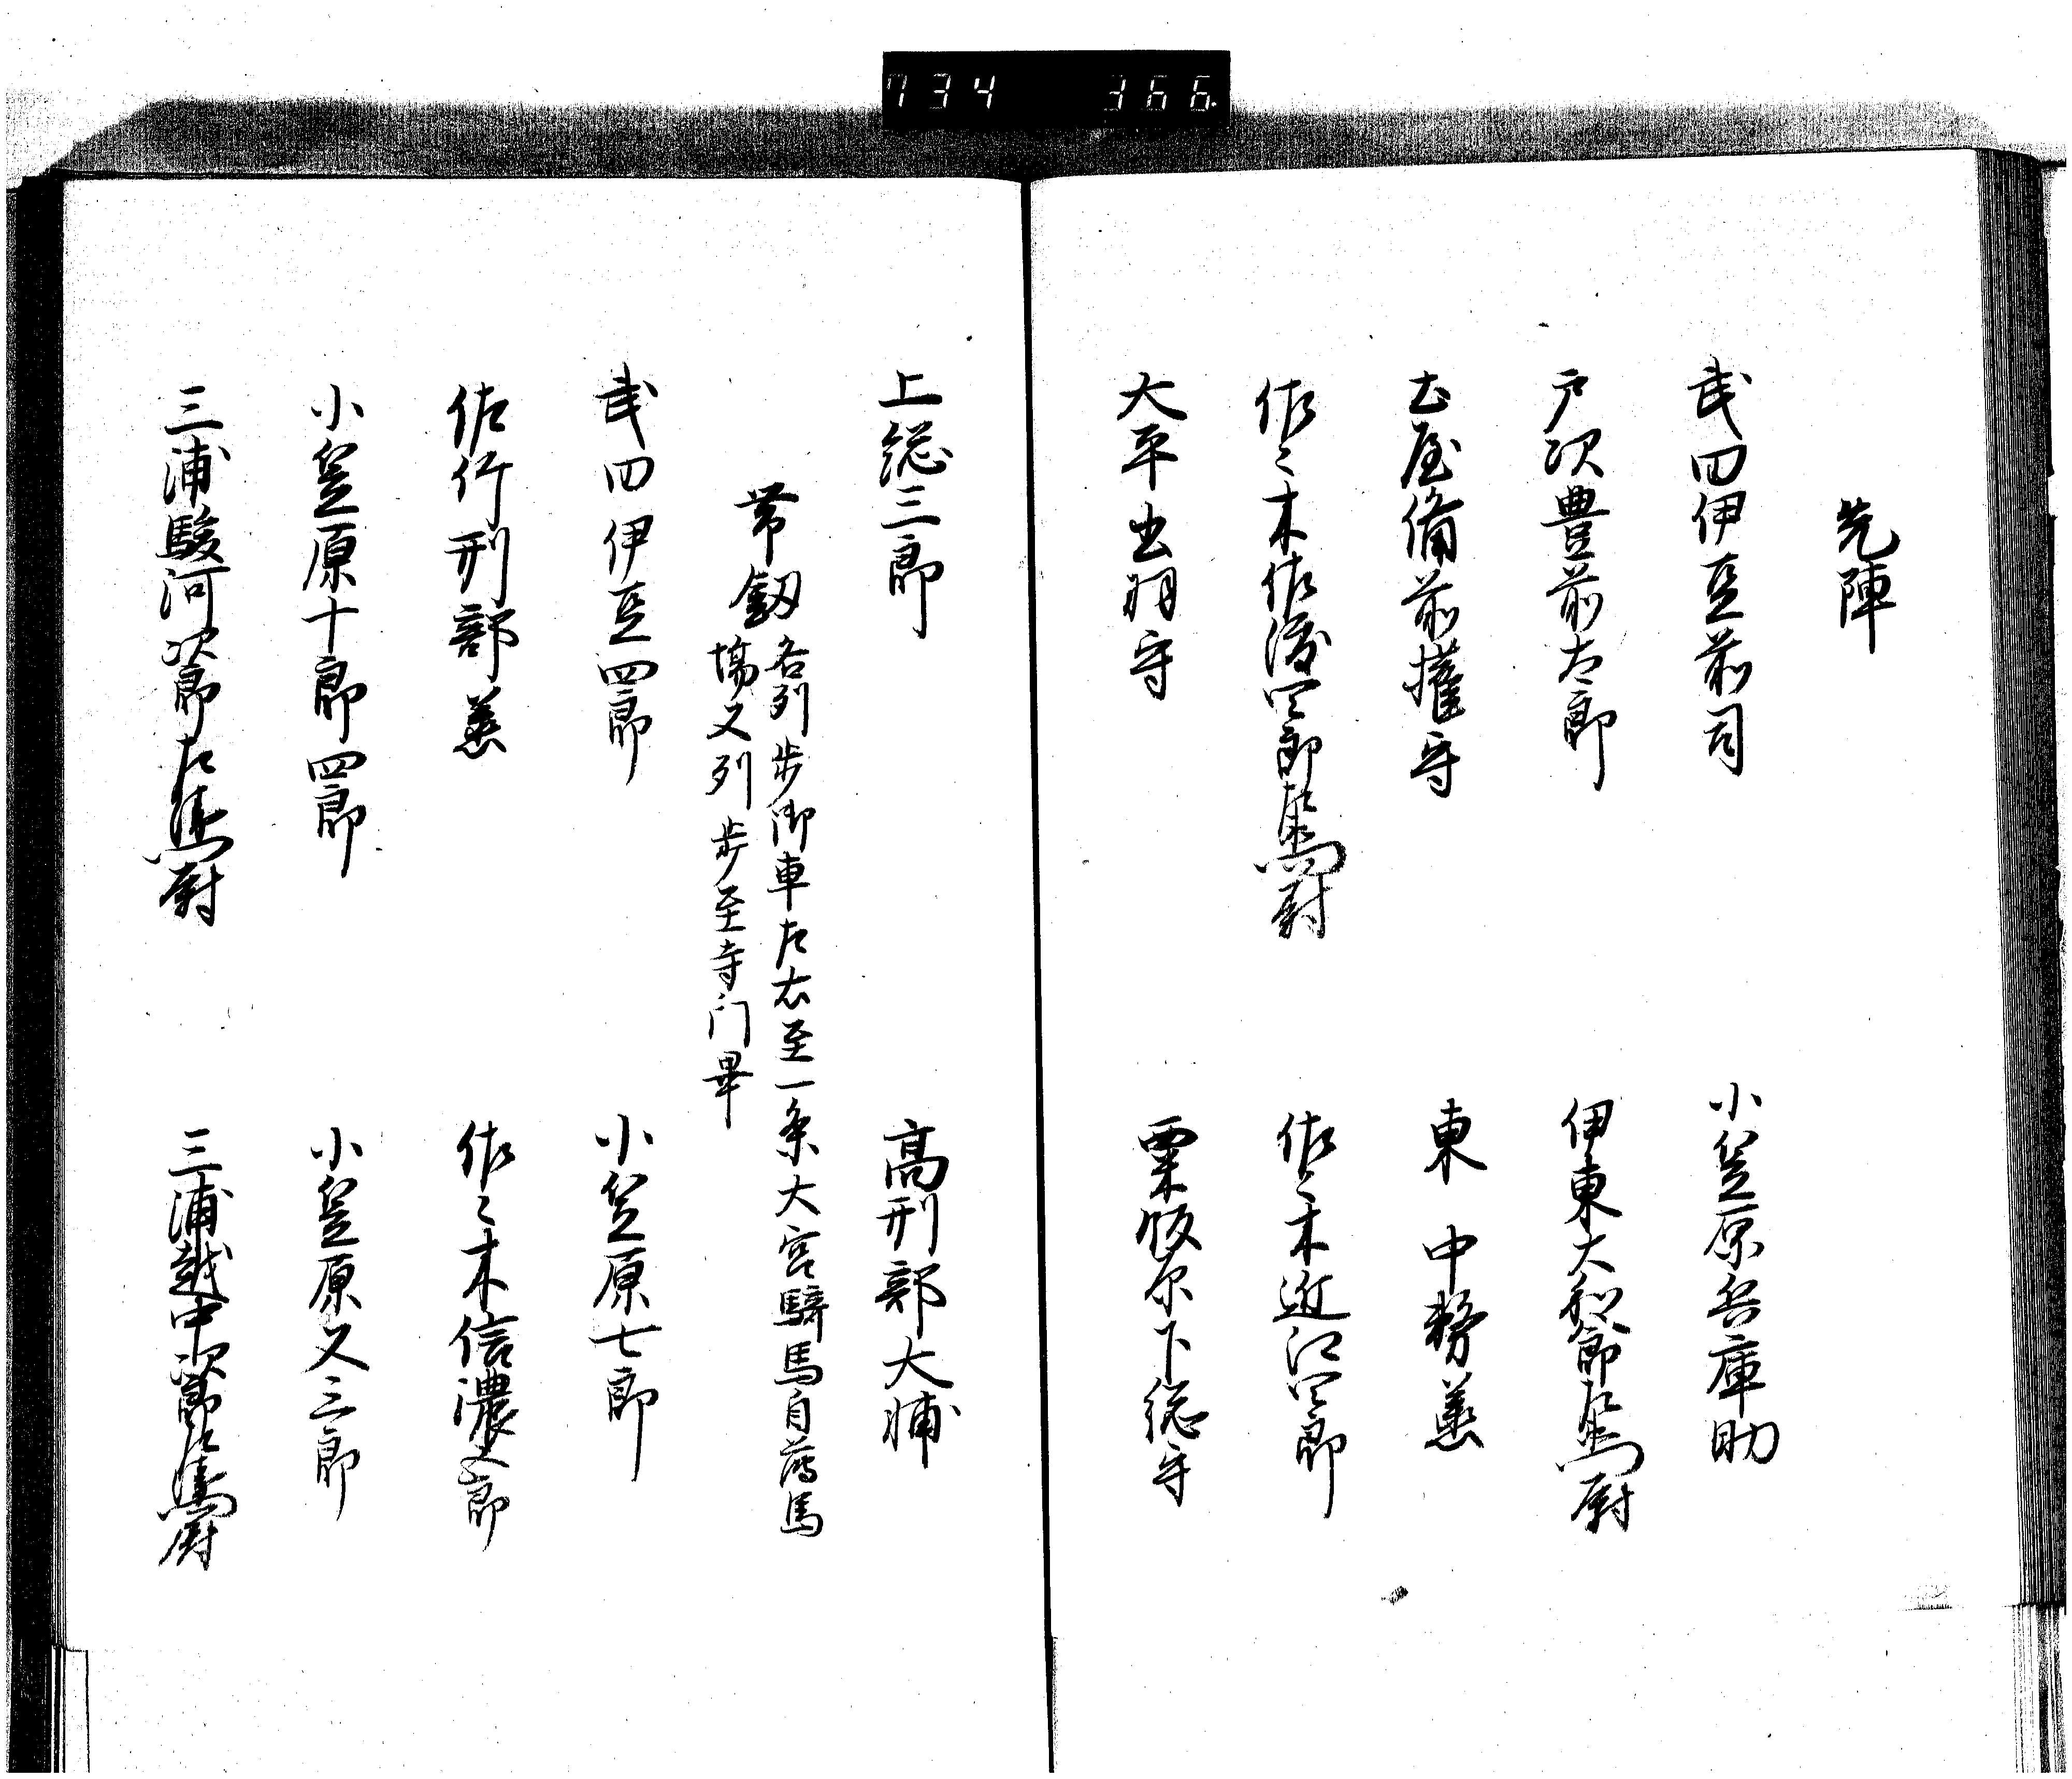 734 366
先陣
武田伊豆前司 小笠原兵庫助
戸次豊前太郎 伊東大和八郎左衛門尉
土屋備前権守 東中務丞
佐々木佐渡四郎左衛門尉 佐々木近江四郎
大平出羽守 粟飯原下総守
上総三郎 高刑部大輔
帯釼
各列歩御車左右至一条大宮騎馬自落馬
場又列歩至寺門畢
武田伊豆四郎 小笠原七郎
佐竹刑部丞 佐々木信濃五郎
小笠原十郎四郎 小笠原又三郎
三浦駿河次郎左衛門尉 三浦越中次郎左衛門尉